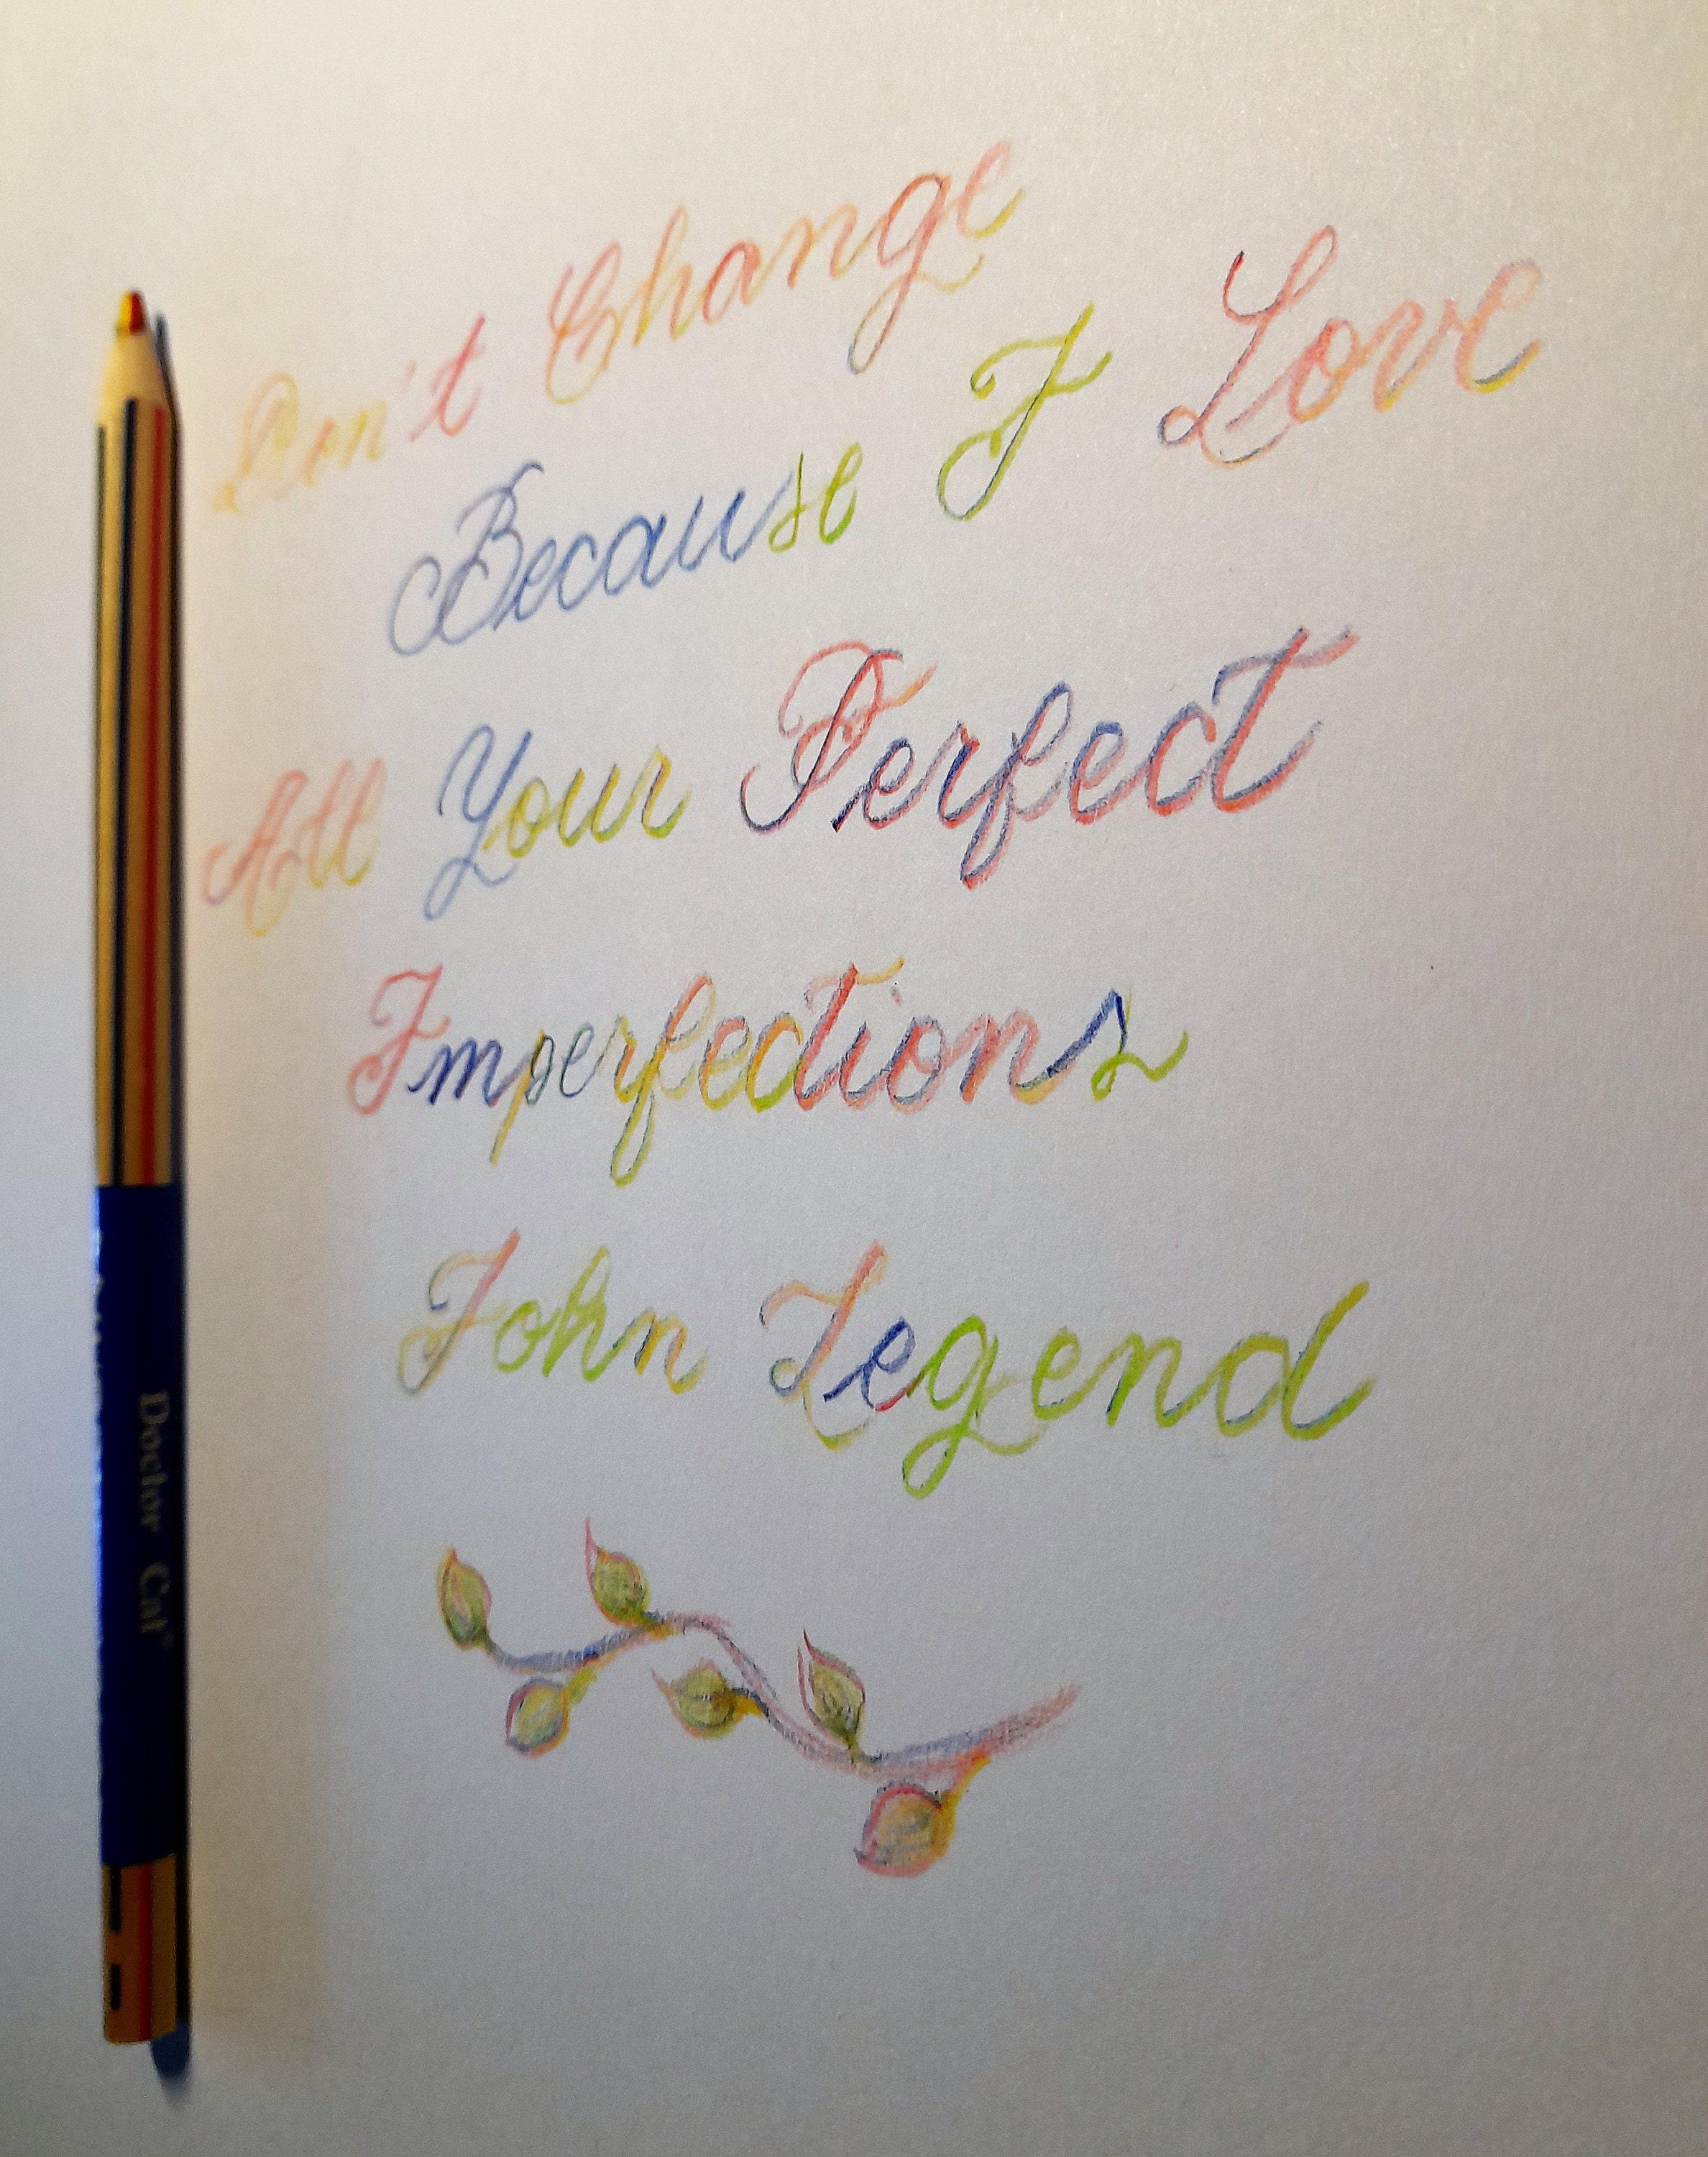 Don't Change
Because I Love
All Your Perfect
Imperfections
John Legend
Doctor